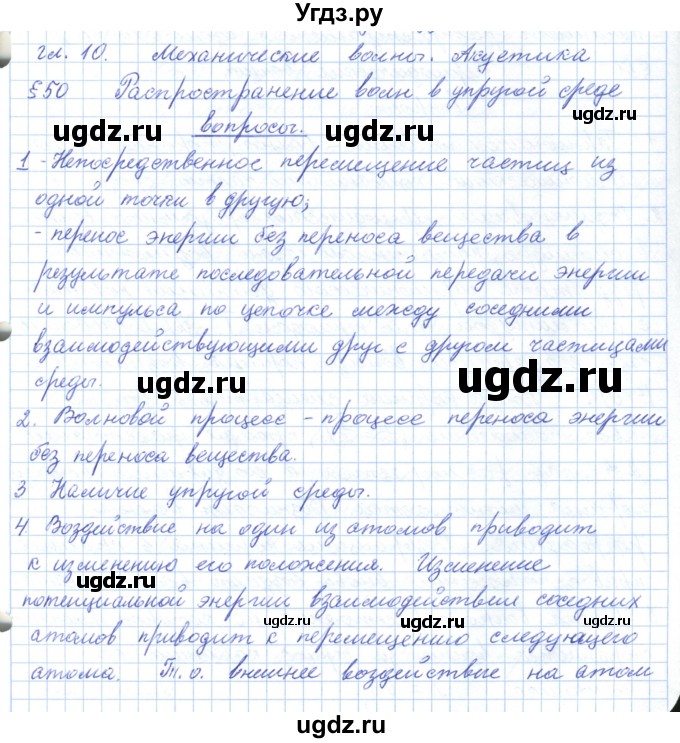 Угдз.ру
гл. 10. Механические волны. Акустика
§50 Распространение волн в упругой среде
ugdz.ru ugdz.ru
вопросы.
1 - Непосредственное перемещение частиц из
одной точки в другую;
ugdz.ru ugdz.ru
- перенос энергии без переноса вещества в
результате последовательной передачи энергии
и импульса по цепочке между соседними
взаимодействующими друг с другом частицами
среды.
ugdz.ru ugdz.ru
2. Волновой процесс - процесс переноса энергии
без переноса вещества.
3 Наличие упругой среды.
4 Воздействие на один из атомов приводит
к изменению его положения. Изменение
ugdz.ru
потенциальной энергии взаимодействия соседних
ugdz.ru ugdz.ru
атомов приводит к перемещению следующего
атома. Т. о. внешнее воздействие на атом
ugdz.ru